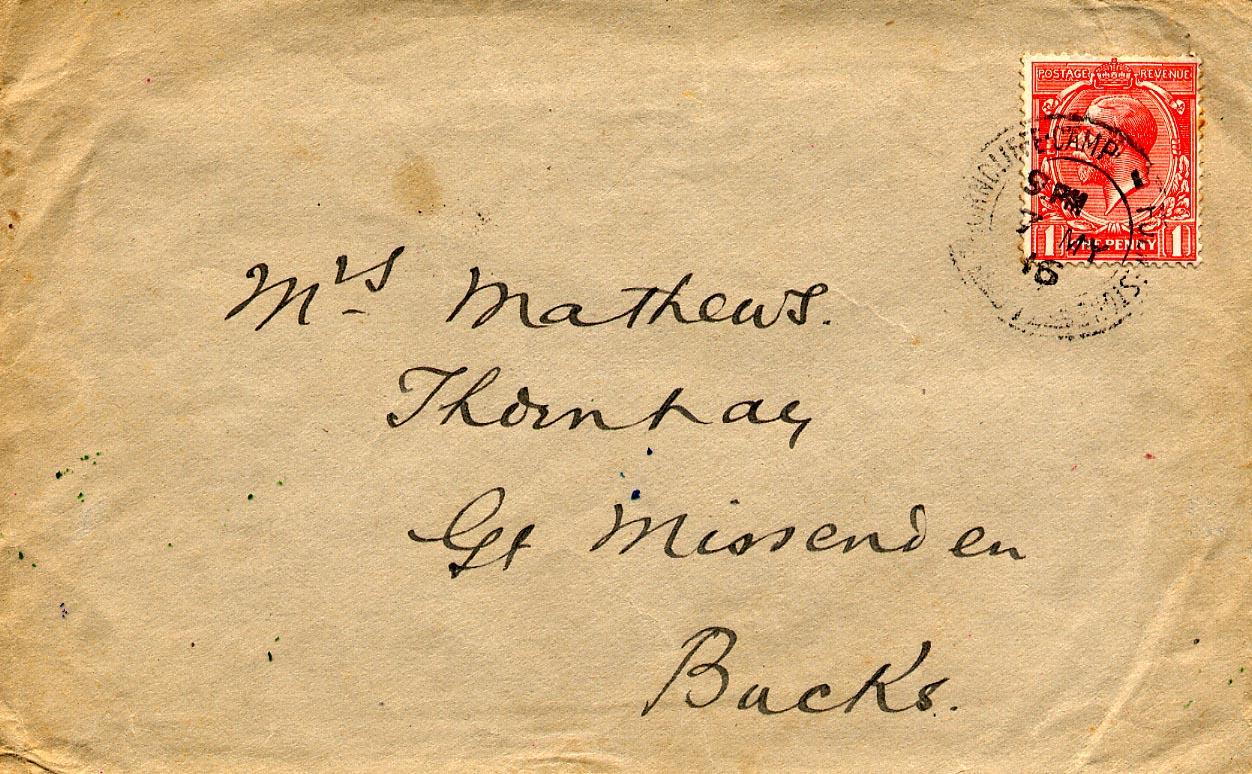 POSTAGE REVENUE
CAMP
9 PM
MY
16
1 ONE PENNY 1
Mrs Mathews.
Thornhay
Gt Missenden
Bucks.